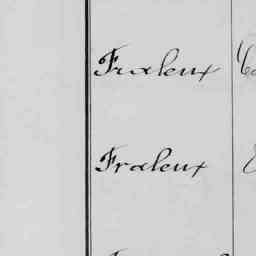 Fraleux
Fraleux